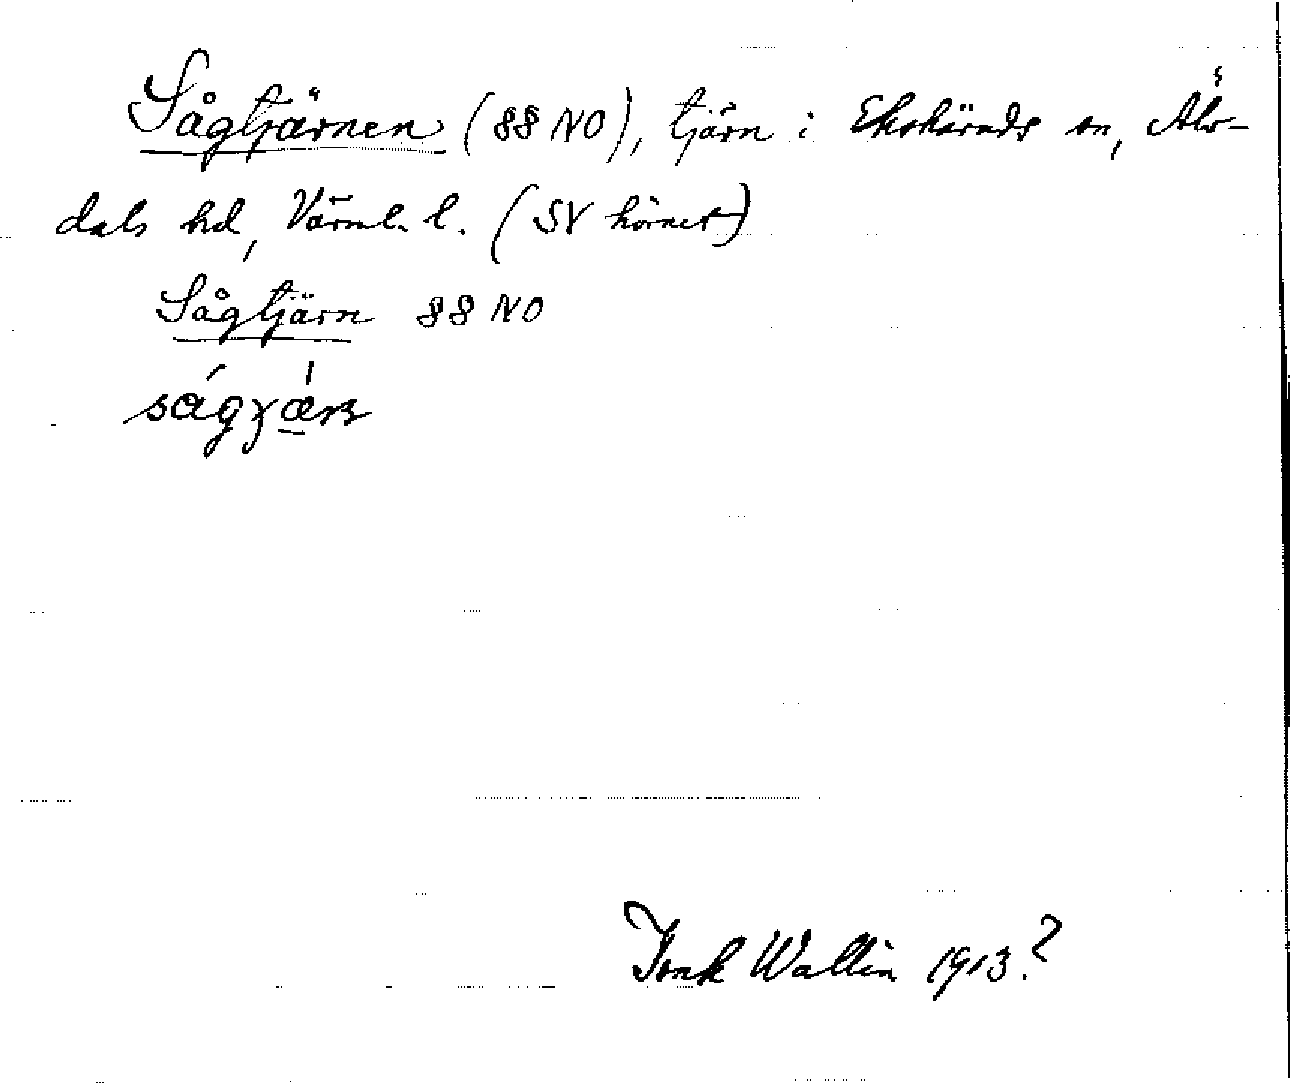 Sågtjärnen (88 NO), tjärn i Ekshärads sn, Älv-
dals hd, Värml. l. (SV hörnet)
Sågtjärn 88 NO
Wallin 1913?